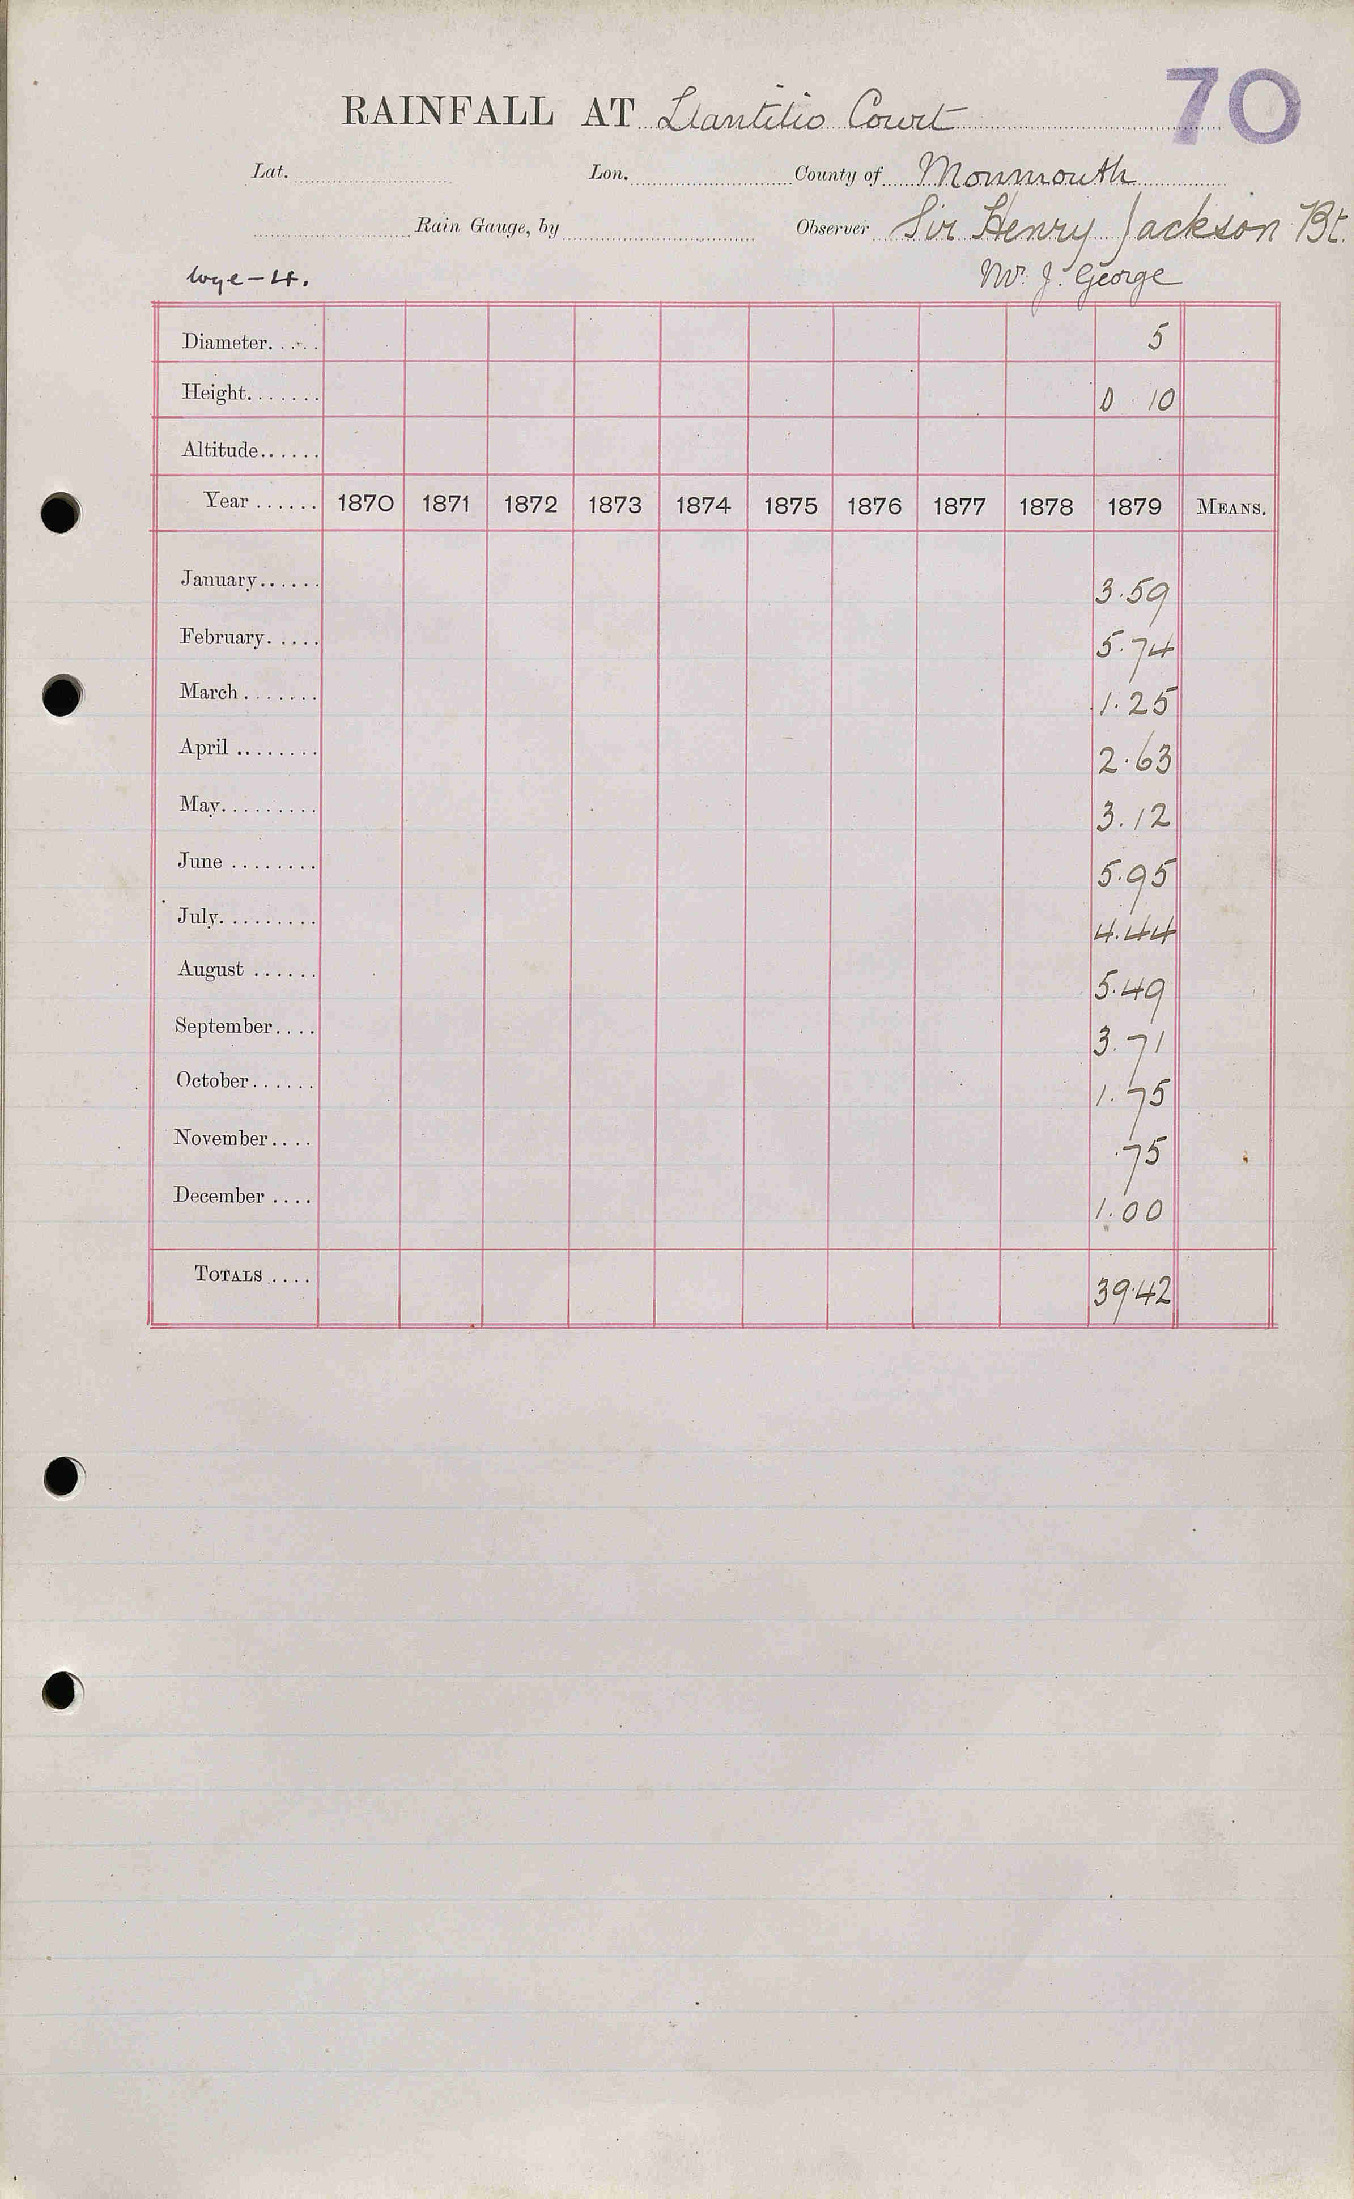 70
RAINFALL AT Llantilio Court
Lat. Lon. County of Monmouth
Rain Gauge, by Observer Sir Henry Jackson Bt.
Wye-4. Mr. J. George
Diameter..... 5
Height....... 0 10
Altitude......
Year ...... 1870 1871 1872 1873 1874 1875 1876 1877 1878 1879 MEANS.
January...... 3.59
February..... 5.74
March ....... 1.25
April ........ 2.63
May......... 3.12
June ........ 5.95
July......... 4.44
August ...... 5.49
September.... 3.71
October...... 1.75
November.... .75
December .... 1.00
TOTALS .... 39.42